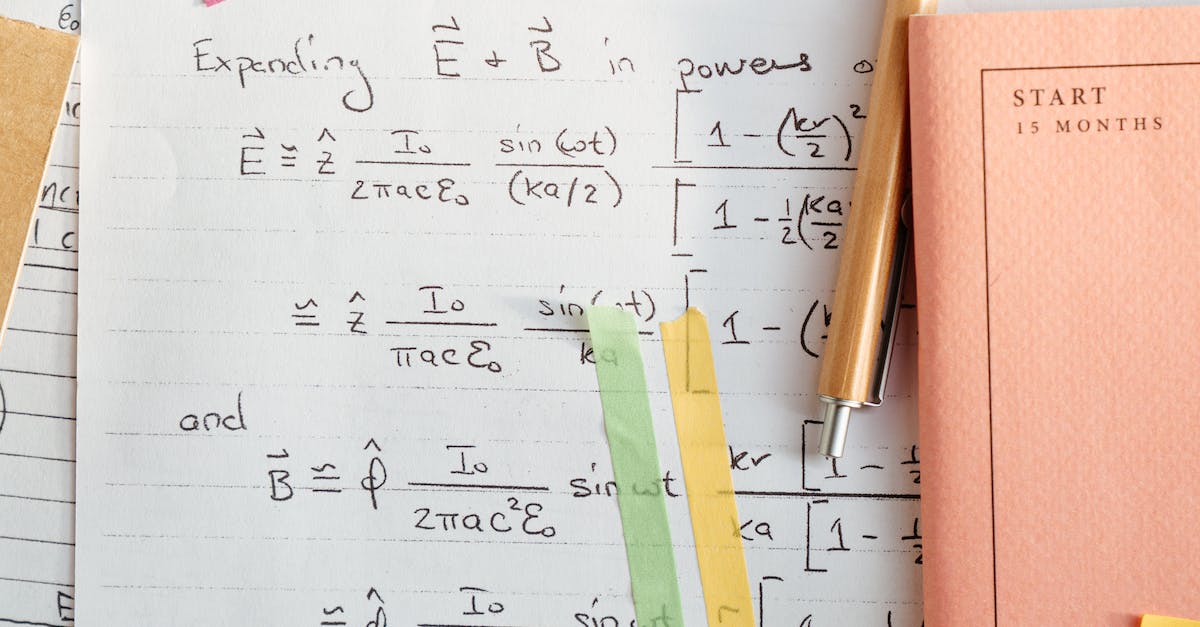 Expanding E⃗ + B⃗ in powers
E⃗ ≅ ẑ I₀/(2πacε₀) sin(ωt)/(ka/2) [1 - (kr/2)²/[1 - 1/2(ka/2
≅ ẑ I₀/(πacε₀) sin(ωt)/ka [1 - (
and
B⃗ ≅ φ̂ I₀/(2πac²ε₀) sin ωt kr [1 - 1/2/ka [1 - 1
≅ φ̂ I₀ sin ωt
START
15 MONTHS